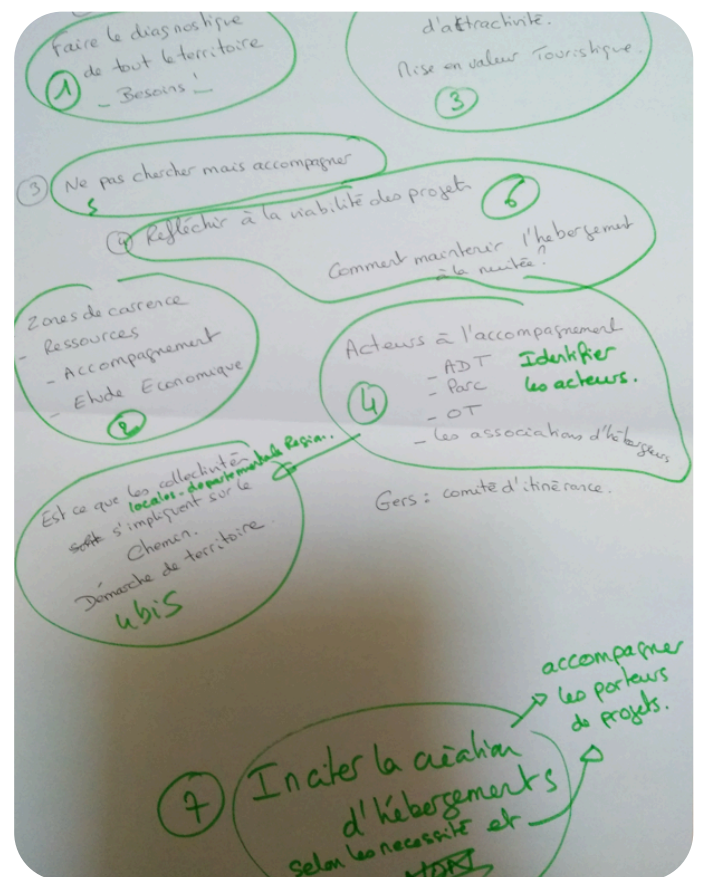 Faire le diagnostique
de tout le territoire
- Besoins !
1
d'attractivité.
Mise en valeur Touristique.
3
3 Ne pas chercher mais accompagner
5
4 Réfléchir à la viabilité des projets
6
Comment maintenir l'hebergement
à la nuitée ?
Zones de carrence
- Ressources
- Accompagnement
- Etude Economique
2
Acteurs à l'accompagnement
- ADT
- Parc
- OT
- Les associations d'hébergeurs
Identifier
les acteurs.
4
Est ce que les collectivités
locales - departementale Region..
s'impliquent sur le
Chemin.
Démarche de territoire.
4biS
Gers : comité d'itinérance.
accompagner
les porteurs
de projets.
7
Inciter la création
d'hébergements
selon les necessité et